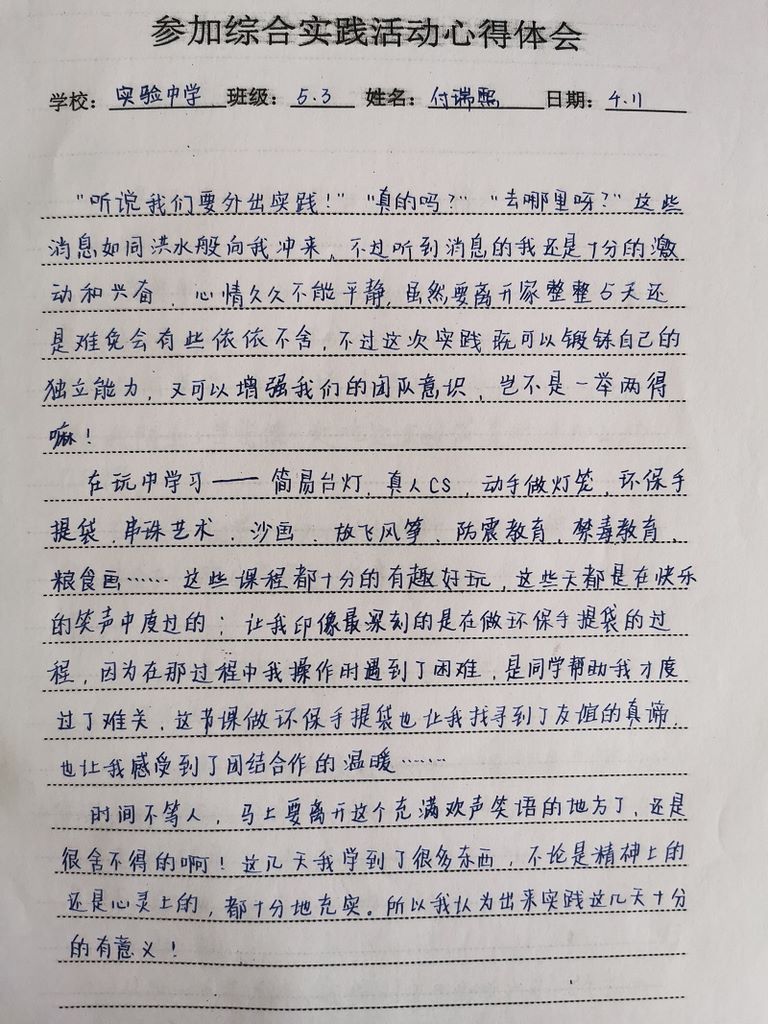 参加综合实践活动心得体会
学校：实验中学 班级：5.3 姓名：付瑞熙 日期：4.11
“听说我们要外出实践！”“真的吗？”“去哪里呀？”这些
消息如同洪水般向我冲来，不过听到消息的我还是十分的激
动和兴奋，心情久久不能平静，虽然要离开家整整5天还
是难免会有些依依不舍，不过这次实践既可以锻铼自己的
独立能力，又可以增强我们的团队意识，岂不是一举两得
嘛！
在玩中学习——简易台灯，真人CS，动手做灯笼，环保手
提袋，串珠艺术，沙画，放飞风筝，防震教育，禁毒教育，
粮食画……这些课程都十分的有趣好玩，这些天都是在快乐
的笑声中度过的；让我印像最深刻的是在做环保手提袋的过
程，因为在那过程中我操作时遇到了困难，是同学帮助我才度
过了难关，这节课做环保手提袋也让我找寻到了友谊的真谛，
也让我感受到了团结合作的温暖……
时间不等人，马上要离开这个充满欢声笑语的地方了，还是
很舍不得的啊！这几天我学到了很多东西，不论是精神上的
还是心灵上的，都十分地充实。所以我认为出来实践这几天十分
的有意义！